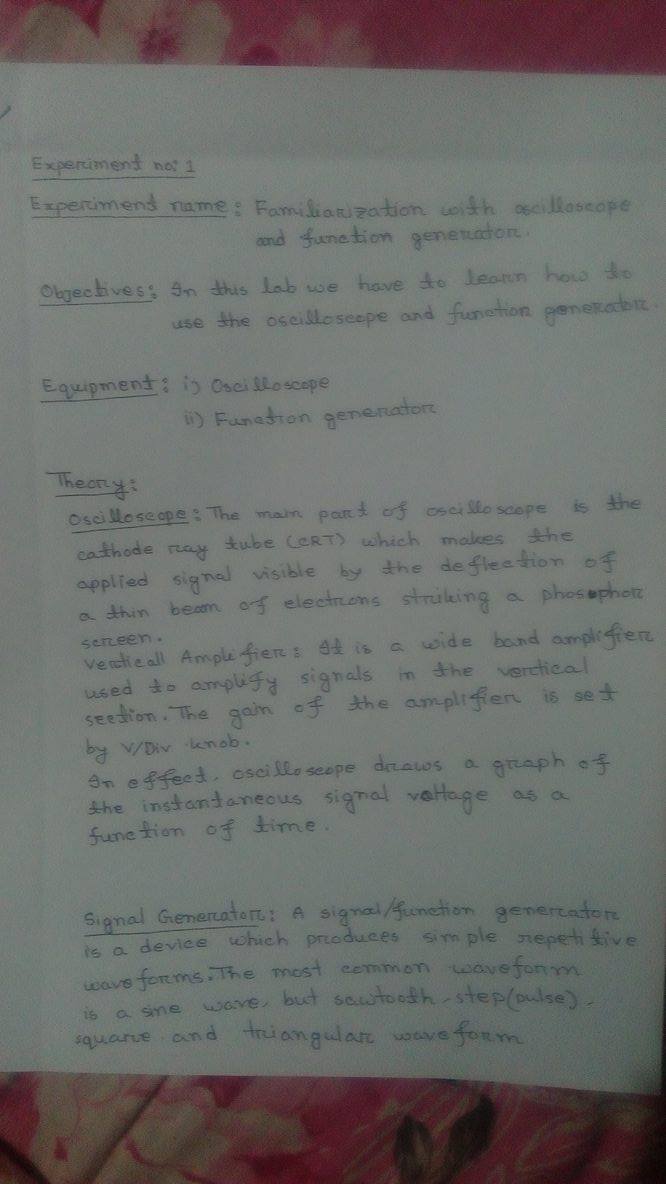 Experiment no: 1
Experiment name: Familiarization with oscilloscope
and function generator.
Objectives: In this lab we have to learn how to
use the oscilloscope and function generator.
Equipment: i) Oscilloscope
ii) Function generator
Theory:
Oscilloscope: The main part of oscilloscope is the
cathode ray tube (CRT) which makes the
applied signal visible by the deflection of
a thin beam of electrons striking a phosophor
screen.
Verticall Amplifier: It is a wide band amplifier
used to amplify signals in the vertical
section. The gain of the amplifier is set
by V/Div knob.
In effect, oscilloscope draws a graph of
the instantaneous signal voltage as a
function of time.
Signal Generator: A signal/function generator
is a device which produces simple repetitive
waveforms. The most common waveform
is a sine wave, but sawtooth, step(pulse),
square and triangular waveform